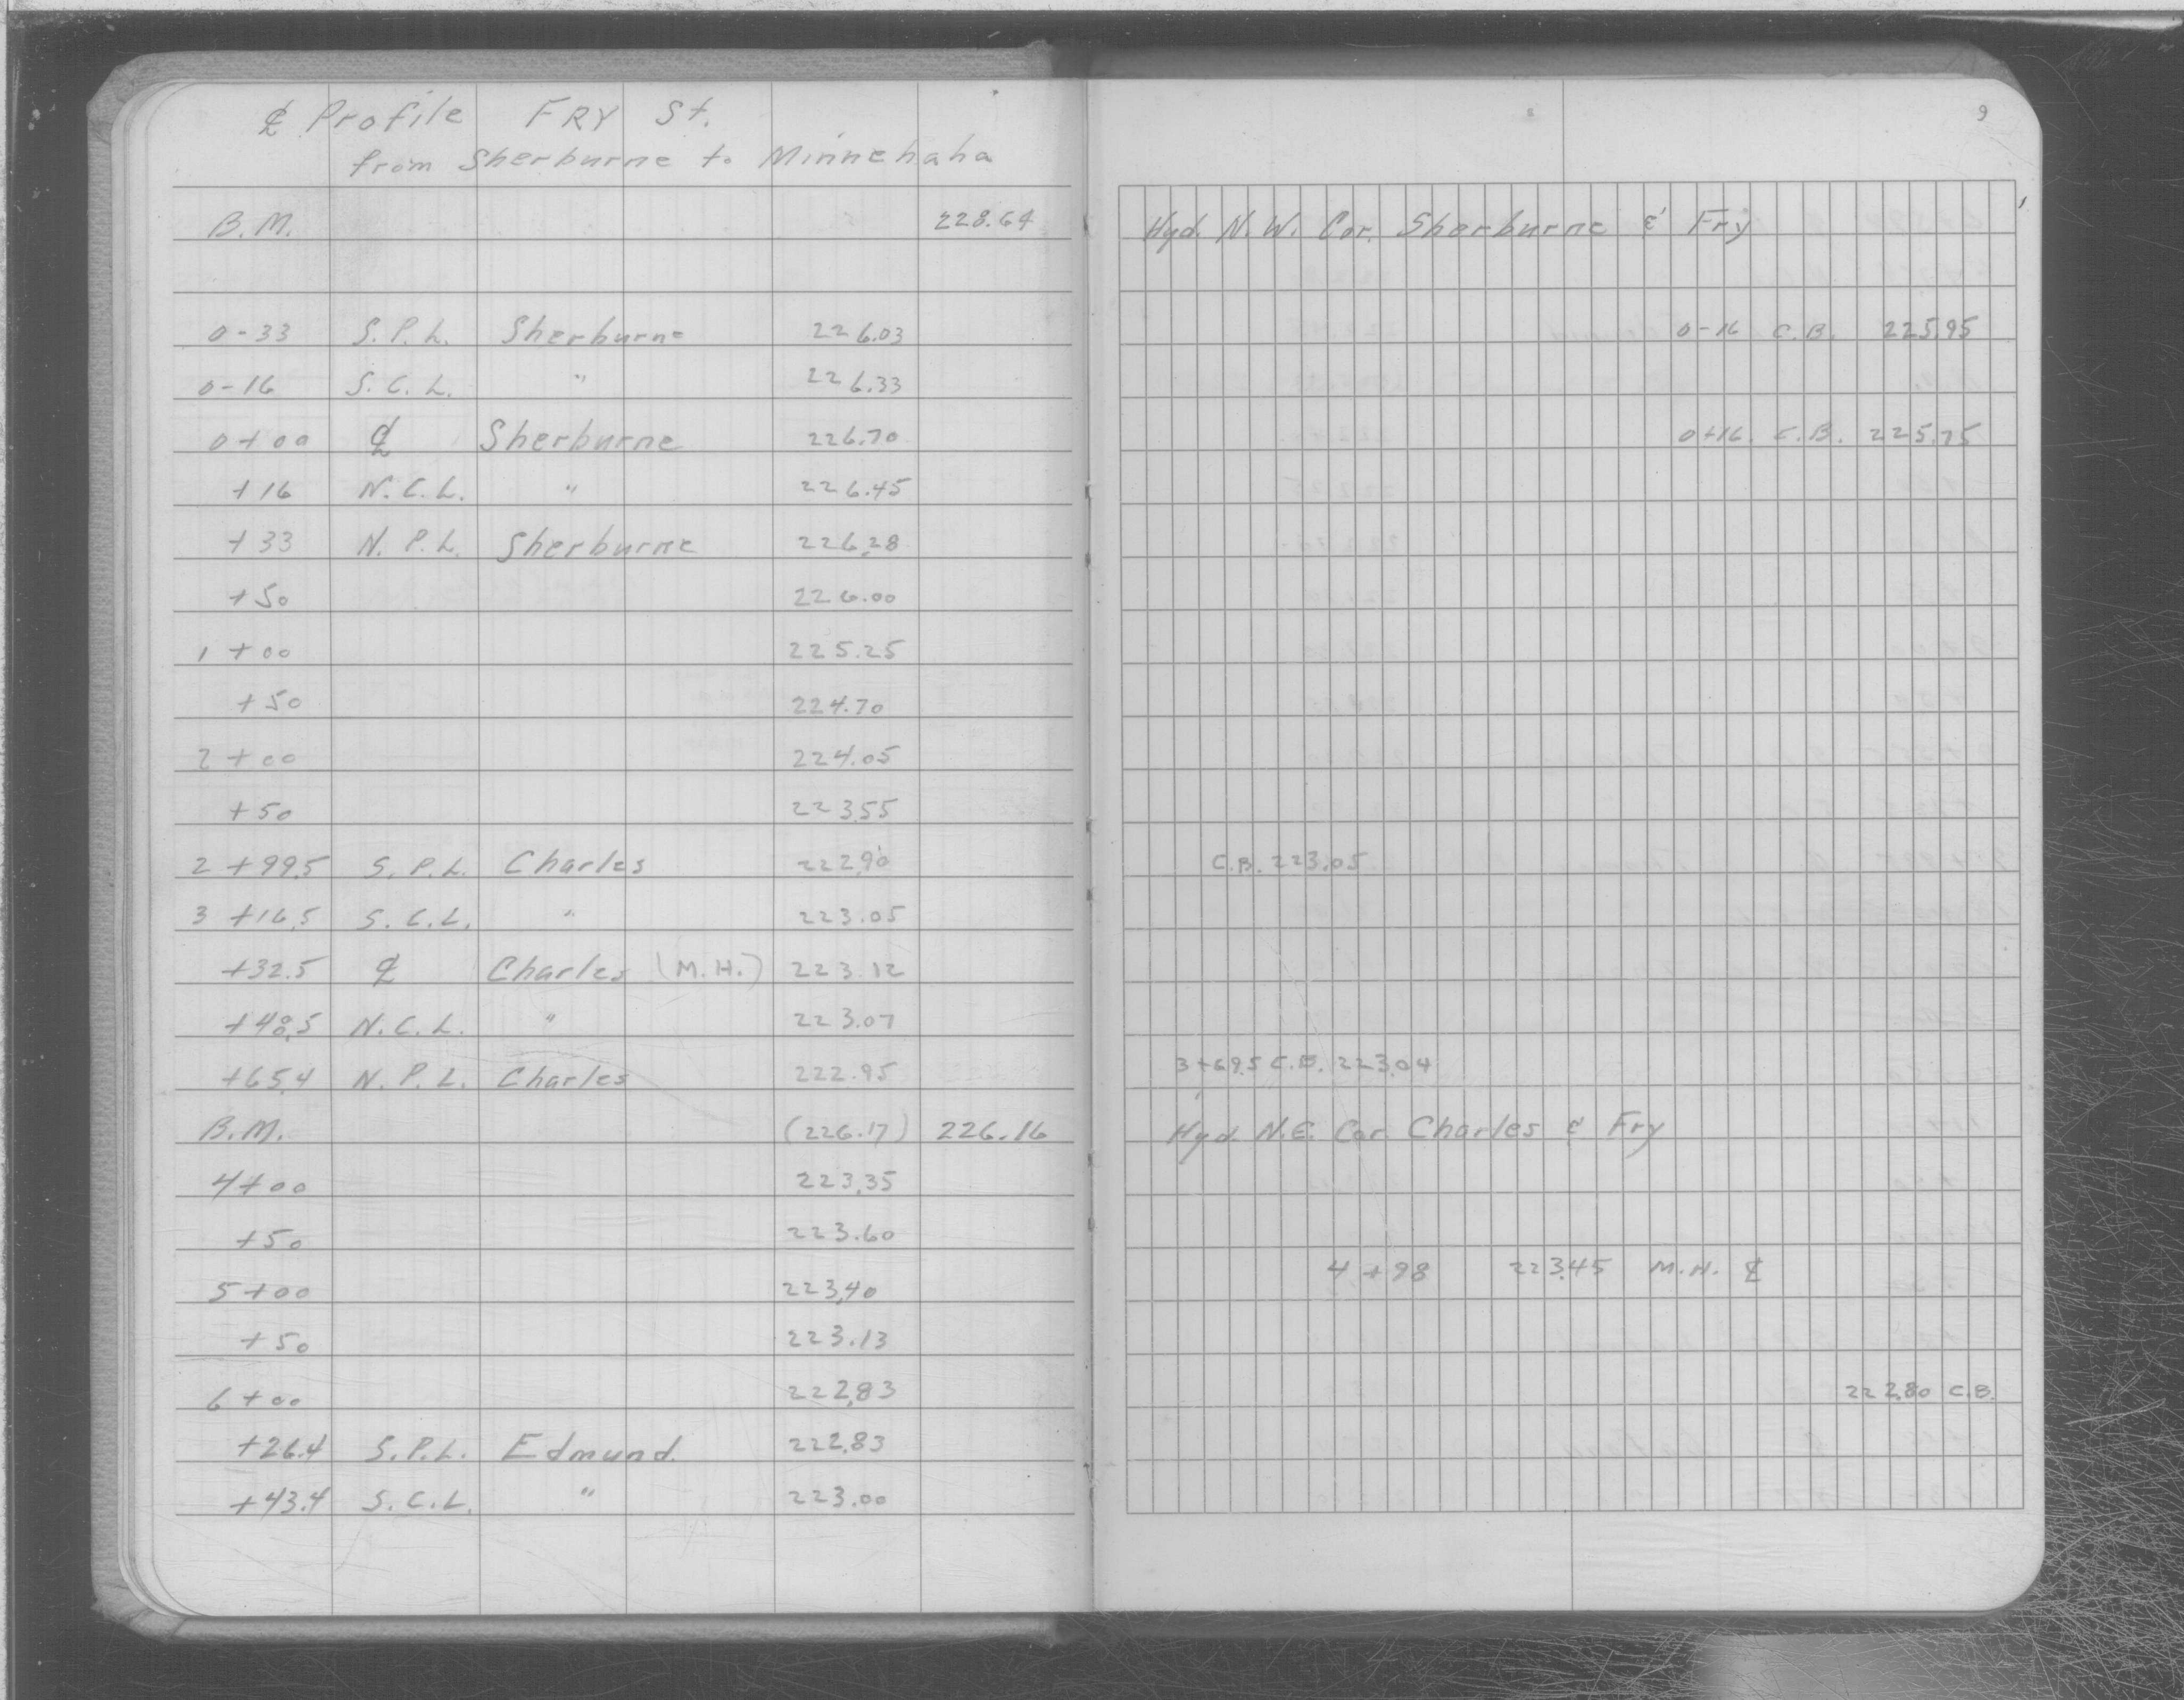 ℄ Profile FRY St.
from Sherburne to Minnehaha
9
B.M. 228.64 Hyd. N.W. Cor. Sherburne & Fry
0-33 S.P.L. Sherburne 226.03 0-16 C.B. 225.95
0-16 S.C.L. " 226.33
0+00 ℄ Sherburne 226.70 0+16 C.B. 225.75
+16 N.C.L. " 226.45
+33 N.P.L. Sherburne 226.28
+50 226.00
1+00 225.25
+50 224.70
2+00 224.05
+50 223.55
2+99.5 S.P.L. Charles 222.90 C.B. 223.05
3+16.5 S.C.L. " 223.05
+32.5 ℄ Charles (M.H.) 223.12
+48.5 N.C.L. " 223.07
+65.4 N.P.L. Charles 222.95 3+69.5 C.B. 223.04
B.M. (226.17) 226.16 Hyd. N.E. Cor. Charles & Fry
4+00 223.35
+50 223.60
4+98 223.45 M.H. ℄
5+00 223.40
+50 223.13
6+00 222.83 222.80 C.B.
+26.4 S.P.L. Edmund 222.83
+43.4 S.C.L. " 223.00